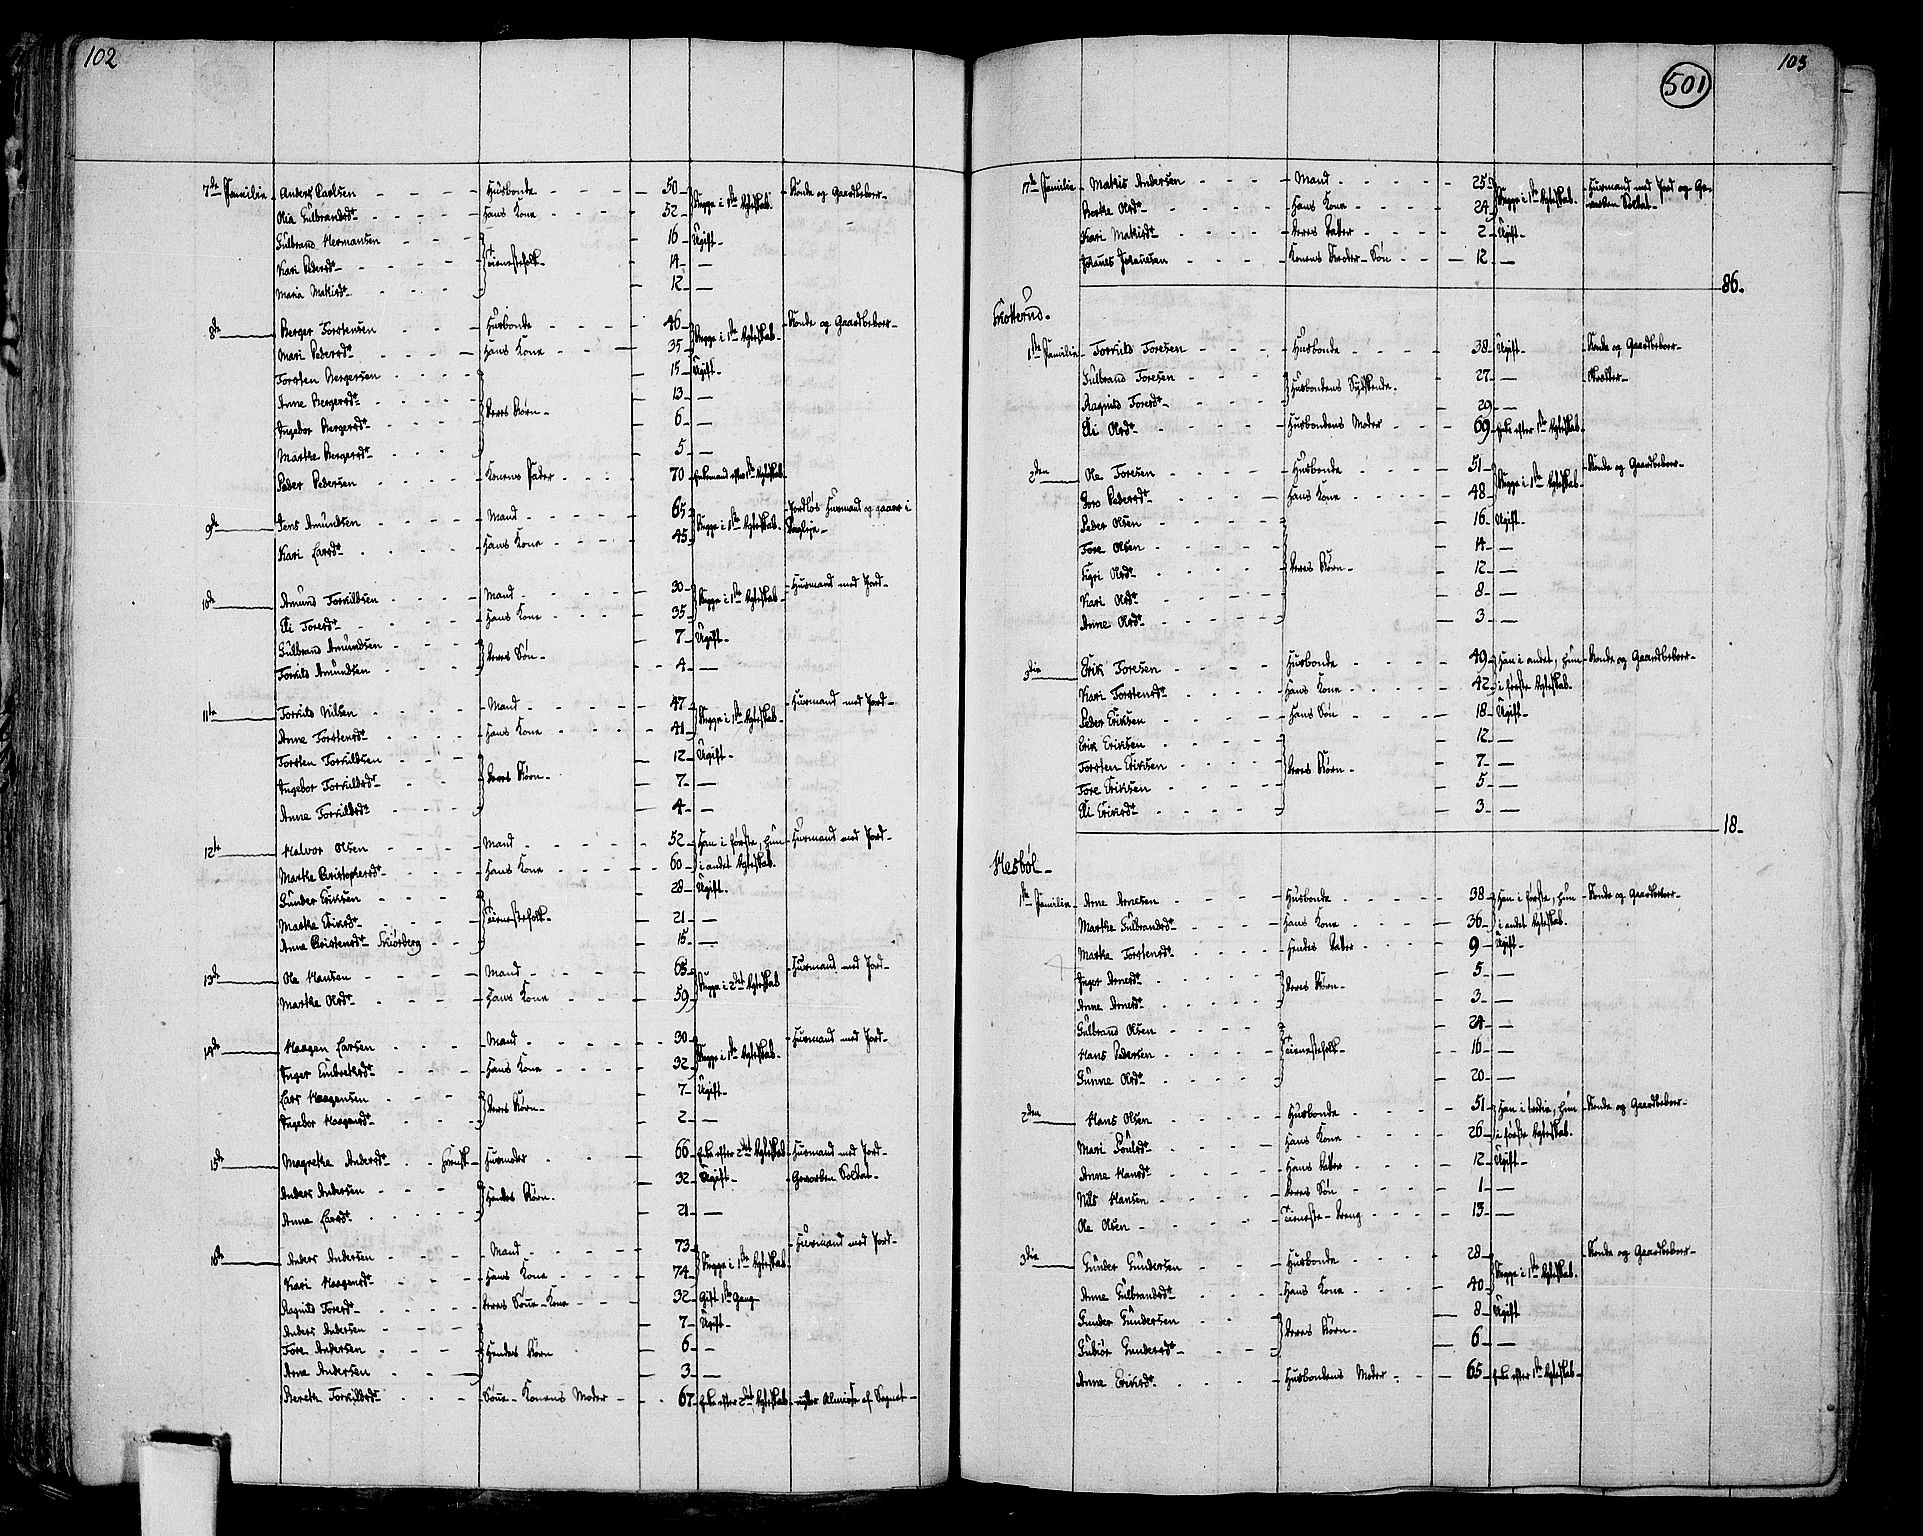 102
7de Familie - Anders Paulsen - Husbonde - 50 - Begge i 1ste Ægteskab. - Bonde og Gaardbeboer -
Olia Gulbrandsdr - Hans Kone - 52 -
Gulbrand Hermansen - 16 - Ugift -
Kari Pedersdr - Tienestefolk - 14 - —
Maria Mathisdr - 12 - —
8de Berger Torstensen - Husbonde - 46 - Begge i 1ste Ægteskab - Bonde og Gaardbeboer -
Mari Pedersdr - Hans Kone - 35 -
Torsten Bergersen - 15 - Ugift -
Anne Bergersdr - 13 - —
Ingebor Bergersdr - Deres Børn - 6 - —
Marthe Bergersdr - 5 - —
Peder Pedersen - Konens Fader - 70 - Enkemand efter 1ste Ægteskab -
9de Jens Amundsen - Mand - 65 - Begge i 1ste Ægteskab. - Jordløs Husmand og gaaer i
Kari Larsdr - Hans Kone - 45 - Dagleje -
10de Amund Torkildsen - Mand - 30 - Begge i 1ste Ægteskab - Husmand med Jord -
Eli Toresdr - Hans Kone - 35 -
Gulbrand Amundsen - Deres Søn - 7 - Ugift -
Torkild Amundsen - 4 - —
11te Torkild Nilsen - Mand - 47 - Begge i 1ste Ægteskab - Husmand med Jord -
Anne Torstensdr - Hans Kone - 41 -
Torsten Torkildsen - 12 - Ugift -
Ingebor Torkildsdr - Deres Børn - 7 - —
Anne Torkildsdr - 4 - —
12te Halvor Olsen - Mand - 52 - Han i første, hun - Husmand med Jord -
Marthe Christophersdr - Hans Kone - 60 - i andet Ægteskab.
Gunder Eriksen - 28 - Ugift -
Marthe Eriksdr - Tienestefolk - 21 - —
Anne Christensdr Skiørberg - 15 - —
13de Ole Hansen - Mand - 65 - Begge i 2det Ægteskab - Husmand med Jord -
Marthe Olsdr - Hans Kone - 59 -
14de Haagen Larsen - Mand - 30 - Begge i 1ste Ægteskab. - Husmand med Jord -
Inger Embretsdr - Hans Kone - 32 -
Lars Haagensen - Deres Børn - 7 - Ugift -
Ingebor Haagensdr - 2 - —
15de Magrethe Andersdr - Husmoder - 66 - Enke efter 2det Ægteskab - Husmand med Jord -
Anders Andersen - Hendes Børn - 32 - Ugift - Geworben Soldat -
Anne Larsdr - 21 - —
16de Anders Andersen - Mand - 73 - Begge i 1ste Ægteskab - Husmand med Jord -
Kari Haagensdr - Hans Kone - 74 -
Ragnild Toresdr - Deres Søns-Kone - 32 - Gift 1ste Gang
Anders Andersen - 7 - Ugift -
Tore Andersen - Hendes Børn - 6 - —
Arne Andersen - 3 - —
Bereth Torkildsdr - Søns-Konens Moder - 67 - Enke efter 2det Ægteskab - nyder Almisse af Sognet -
103
501
17de Familie - Mathis Andersen - Mand - 25 - Begge i 1ste Ægteskab. - Husmand med Jord og Ge-
Borthe Olsdr - Hans Kone - 24 - worben Soldat -
Kari Mathisdr - Deres Datter - 2 - Ugift -
Johannes Johannesen - Konens Broder-Søn - 12 - —
86.
Skotterud -
1ste Familie - Torkild Toresen - Husbonde - 38 - Ugift - Bonde og Gaardbeboer -
Gulbrand Toresen - Husbondens Sydskende. - 27 - —
Ragnild Toresdr - 29 - —
Eli Olsdr - Husbondens Moder - 69 - Enke efter 1ste Ægteskab -
2den Ole Toresen - Husbonde - 51 - Begge i 1ste Ægteskab - Bonde og Gaardbeboer -
Goro Pedersdr - Hans Kone - 48 -
Peder Olsen - 16 - Ugift -
Tore Olsen - 14 - —
Sigri Olsdr - Deres Børn - 12 - —
Kari Olsdr - 8 - —
Anne Olsdr - 3 - —
3die Erik Toresen - Husbonde - 49 - Han i andet, hun - Bonde og Gaardbeboer -
Kari Torstensdr - Hans Kone - 42 - i første Ægteskab.
Peder Eriksen - Hans Søn - 18 - Ugift -
Erik Eriksen - 12 - —
Torsten Eriksen - Deres Børn - 7 - —
Tore Eriksen - 5 - —
Eli Eriksdr - 3 - —
18 -
Hesbøl -
1ste Familie - Arne Arnesen - Husbonde - 38 - Han i første, hun - Bonde og Gaardbeboer -
Marthe Gulbrandsdr - Hans Kone - 36 - i andet Ægteskab.
Marthe Torstensdr - Hendes Datter - 9 - Ugift -
Inger Arnesdr - Deres Børn - 5 - —
Anne Arnesdr - 3 - —
Gulbrand Olsen - 24 - —
Hans Pedersen - Tienestefolk - 16 - —
Gunne Olsdr - 20 - —
2den Hans Olsen - Husbonde - 51 - Han i tredie, hun - Bonde og Gaardbeboer -
Mari Poulsdr - Hans Kone - 26 - i første Ægteskab.
Anne Hansdr - Hans Datter - 12 - Ugift -
Nils Hansen - Deres Søn - 1 - —
Ole Olsen - Tieneste-Dreng - 13 - —
3die Gunder Gundersen - Husbonde - 28 - Begge i 1ste Ægteskab. - Bonde og Gaardbeboer -
Anne Gulbrandsdr - Hans Kone - 40 -
Gunder Gundersen - Deres Børn - 8 - Ugift
Gubiør Gundersdr - 6 - —
Anne Eriksdr - Husbondens Moder - 65 - Enke efter 1ste Ægteskab -